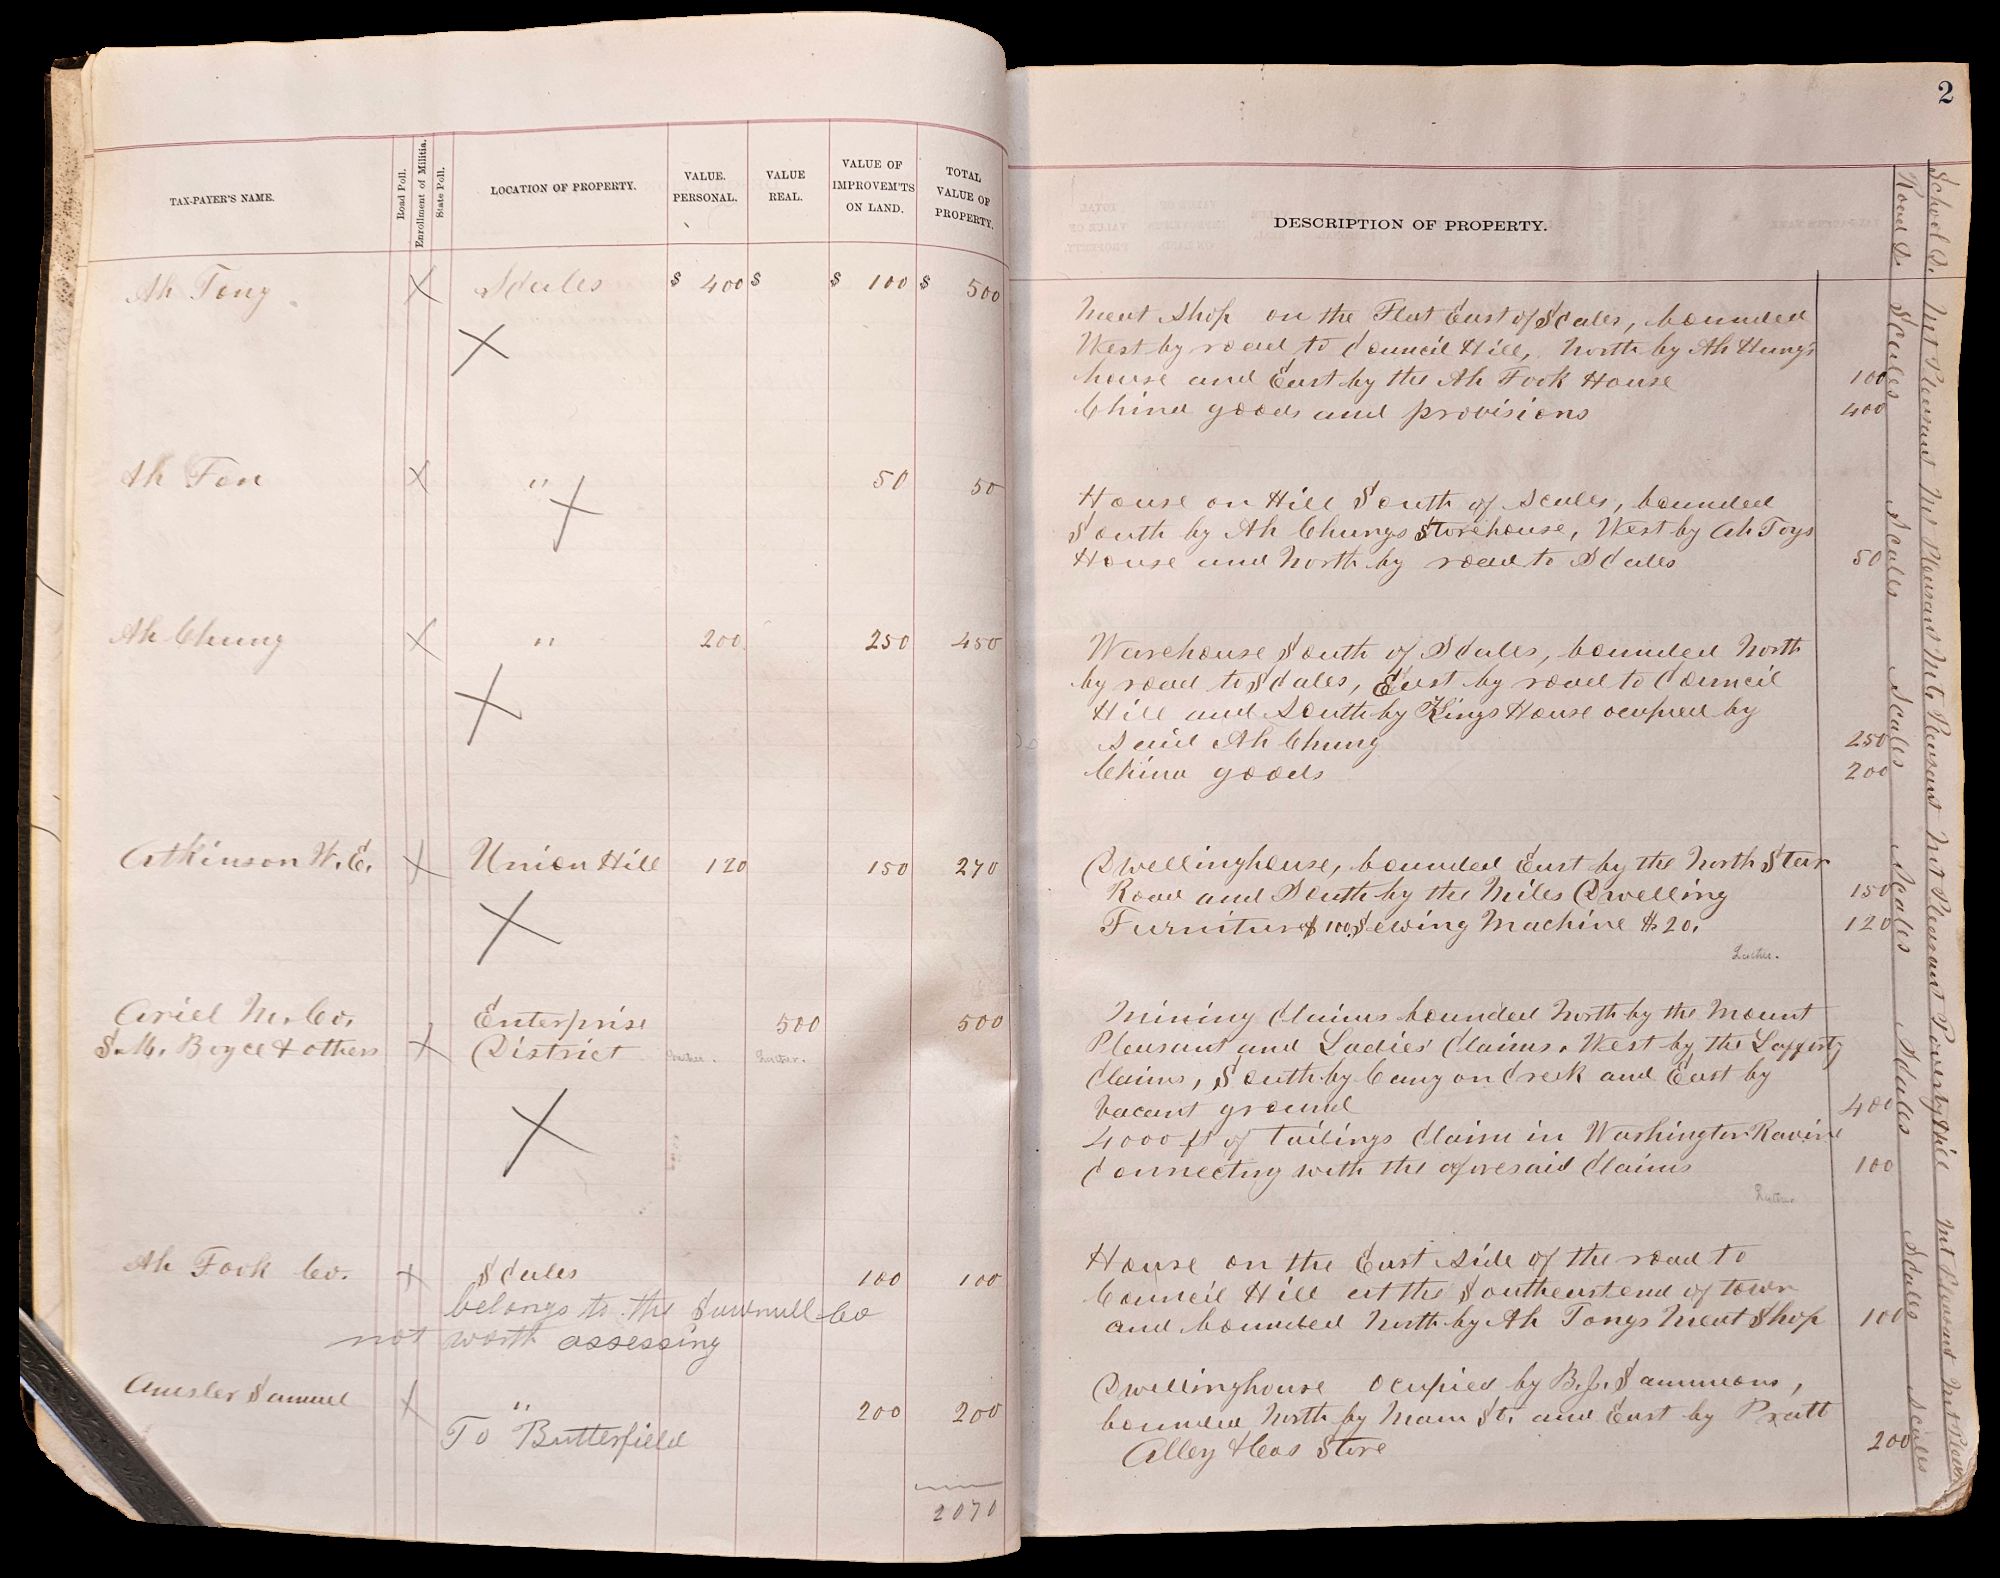 TAX-PAYER'S NAME.
Road Poll.
Enrollment of Militia.
State Poll.
LOCATION OF PROPERTY.
VALUE. PERSONAL.
VALUE REAL.
VALUE OF IMPROVEM'TS ON LAND.
TOTAL VALUE OF PROPERTY.
Ah Tong X Scales $ 400 $ $ 100 $ 500
X
Ah Fon X " 50 50
X
Ah Chung X " 200 250 450
X
Atkinson W. E. X Union Hill 120 150 270
X
Ariel M. Co. Enterprise 500 500
S. M. Boyce & others X District
X
Ah Fook Co. X Scales 100 100
belongs to the Sawmill Co
not worth assessing
Amsler Samuel X " 200 200
To Butterfield
2070
2
DESCRIPTION OF PROPERTY.
Road D.
School D.
Meat Shop on the Flat East of Scales, bounded
West by road to Council Hill, North by Ah Hung's
house and East by the Ah Fook House 100
China goods and provisions 400
House on Hill South of Scales, bounded
South by Ah Chungs Storehouse, West by Ah Toys
House and North by road to Scales 50
Warehouse South of Scales, bounded North
by road to Scales, East by road to Council
Hill and South by Kings House ocupied by
said Ah Chung 250
China goods 200
Dwellinghouse, bounded East by the North Star
Road and South by the Miles Dwelling 150
Furniture $100. Sewing Machine $20. 120
Mining Claims bounded North by the Mount
Pleasant and Ladies' Claims, West by the Lafferty
Claims, South by Canyon Creek and East by
vacant ground 400
4000 ft of Tailings Claim in Washington Ravine
Connecting with the aforesaid Claims 100
House on the East side of the road to
Council Hill at the Southeast end of town
and bounded North by Ah Tongs Meat Shop 100
Dwellinghouse Ocupied by B. J. Sammons,
bounded North by Main St. and East by Pratt
Alley & Cos Store 200
Scales Scales Scales Scales Scales Scales Scales
Mt Pleasant Mt Pleasant Mt Pleasant Mt Pleasant Poverty Hill Mt Pleasant Mt Pleasant